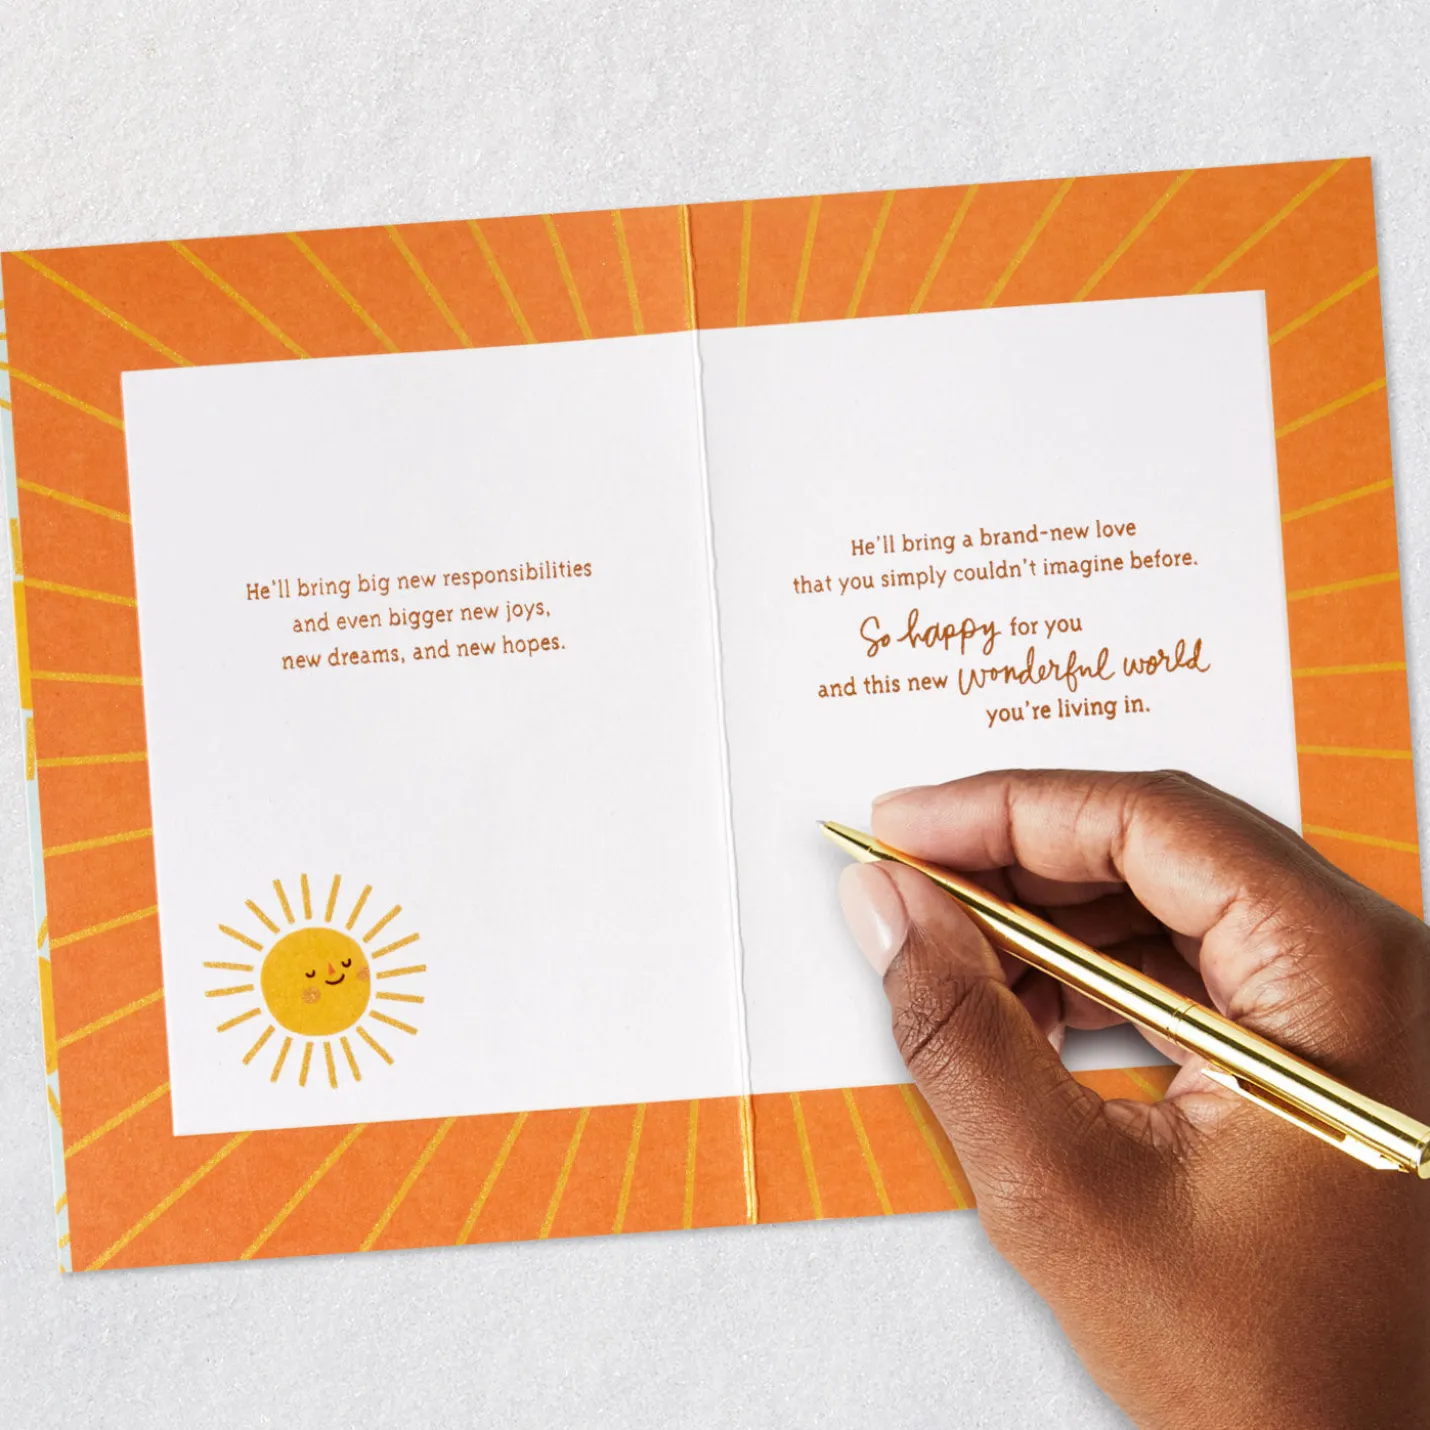 He'll bring big new responsibilities
and even bigger new joys,
new dreams, and new hopes.
He'll bring a brand-new love
that you simply couldn't imagine before.
So happy for you
and this new wonderful world
you're living in.